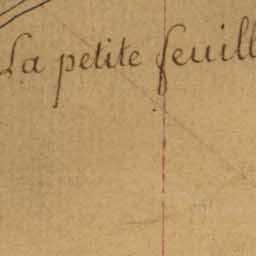 La petite feuill